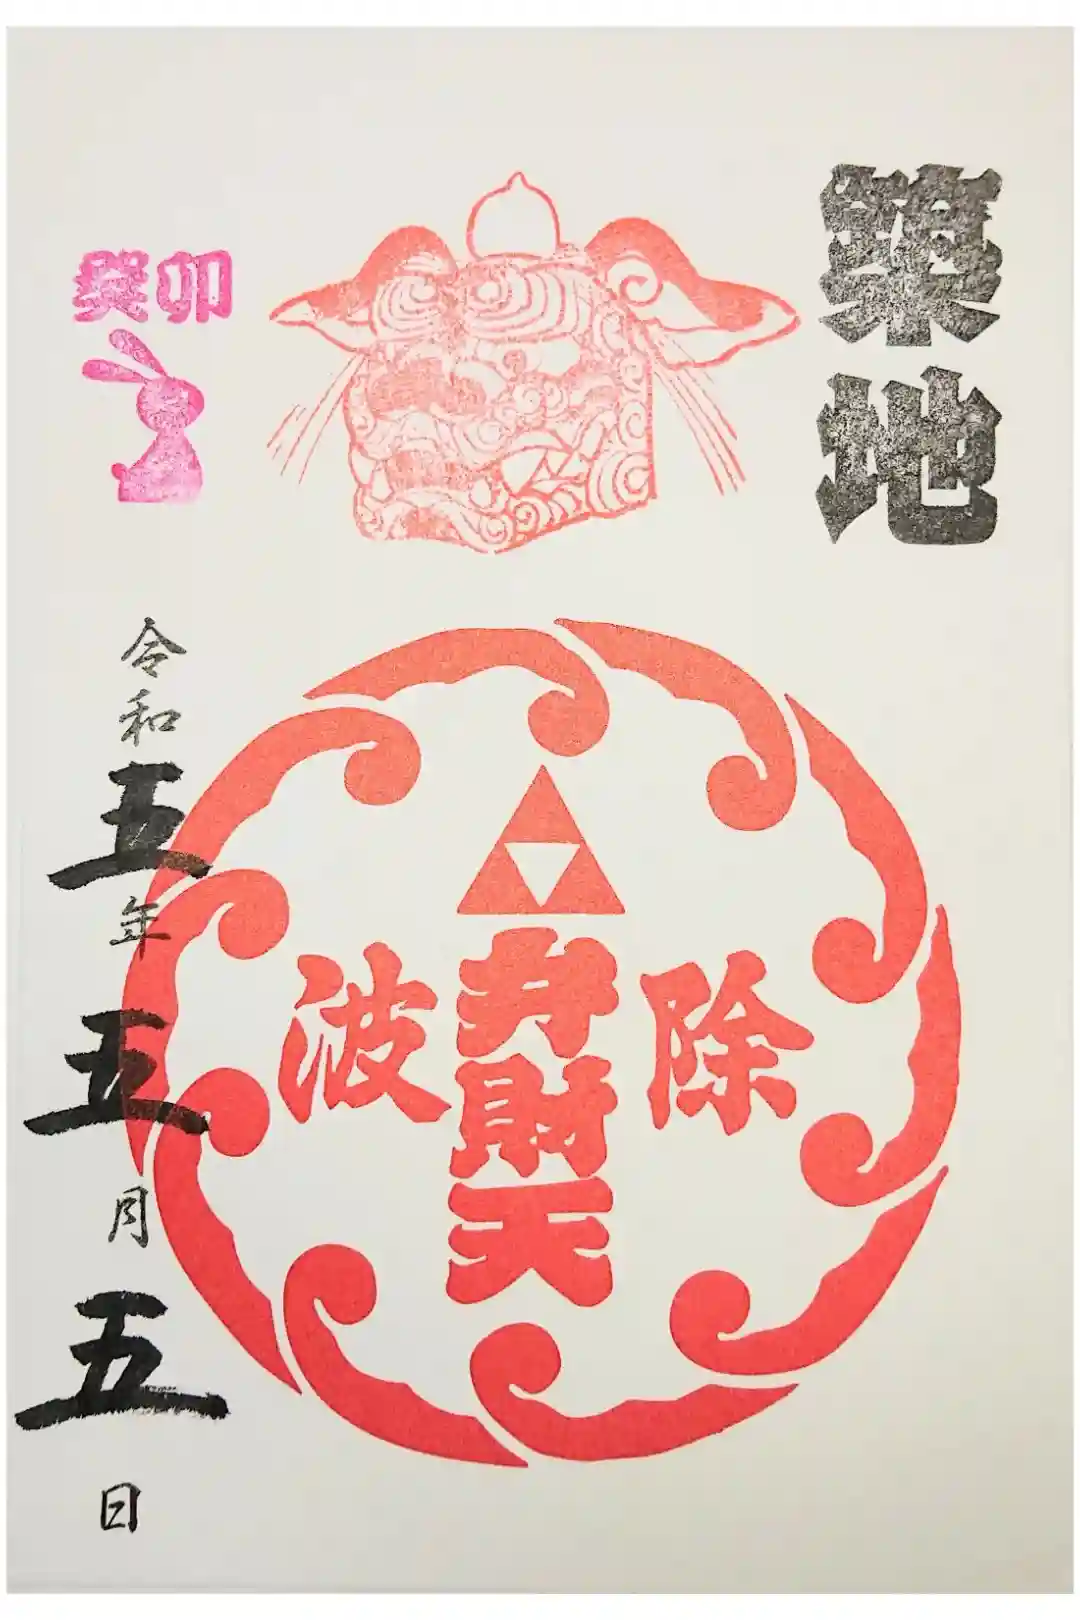 築地
除
弁財天
波
癸卯
令和五年五月五日